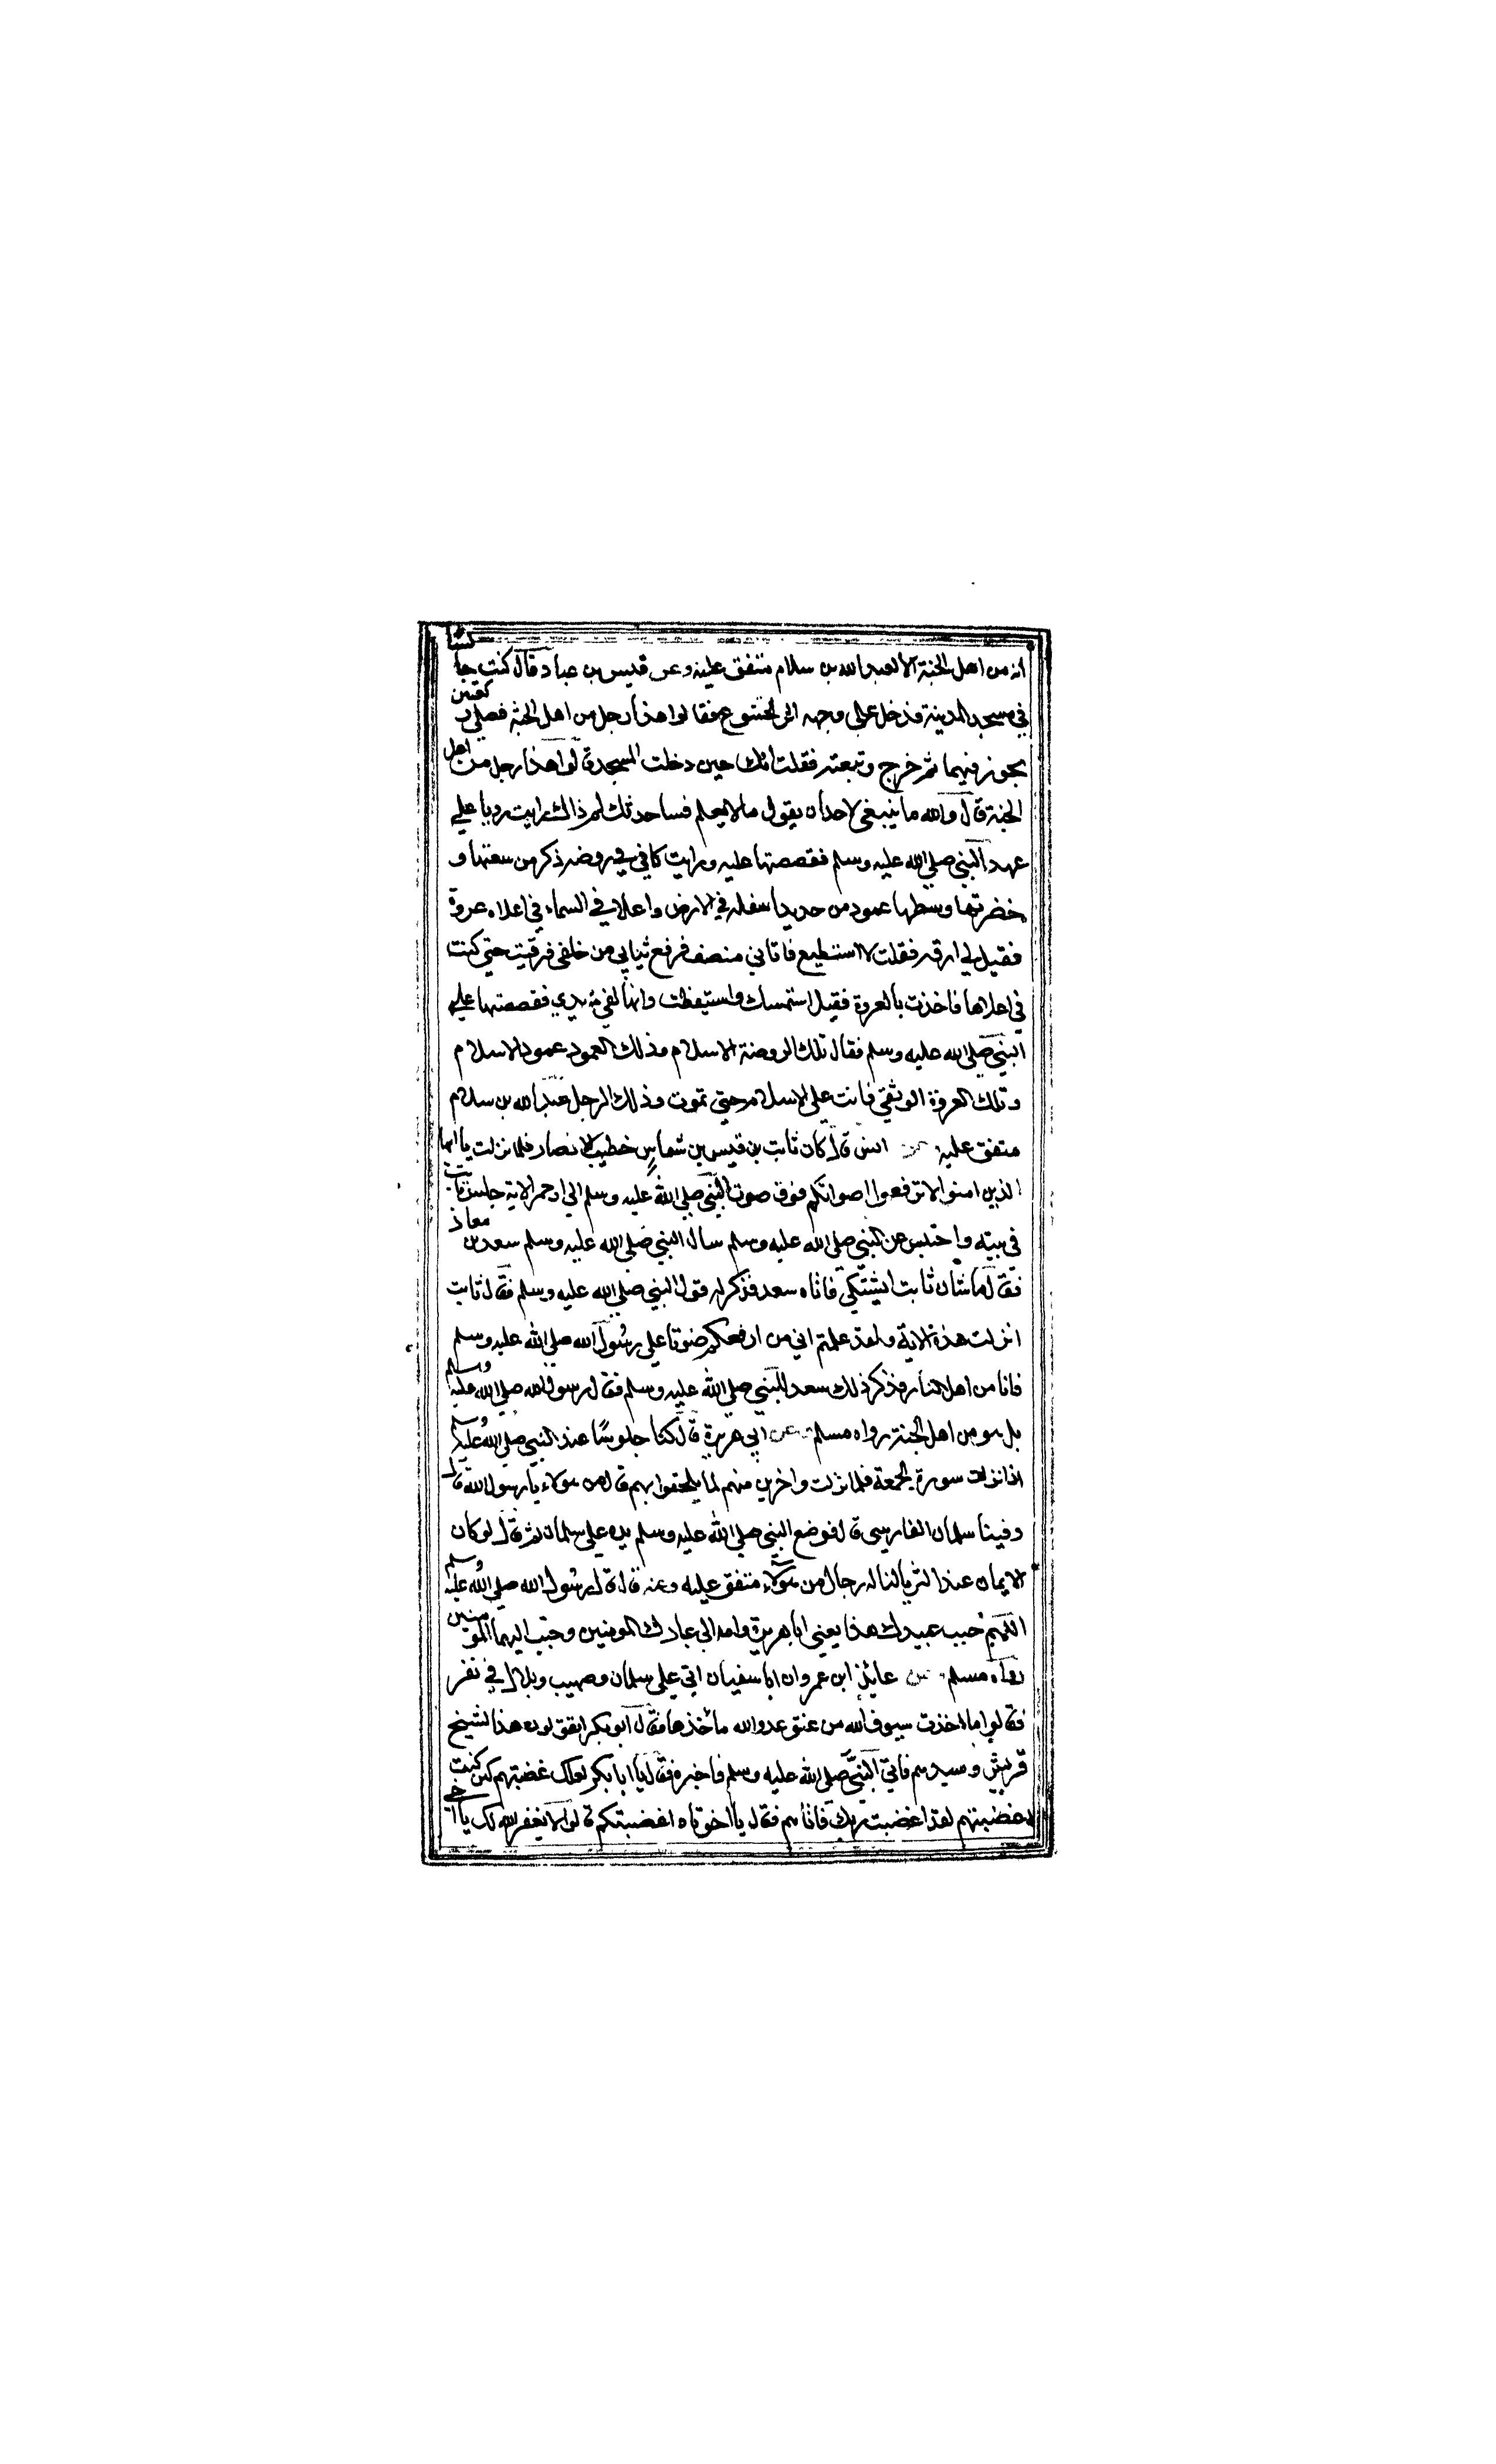 انه من اهل الجنة الا لعبد الله بن سلام متفق عليه وعن قيس بن عباد قال كنت جالسا
في مسجد المدينة فدخل رجل على وجهه اثر الخشوع فقالوا هذا رجل من اهل الجنة فصلي ركعتين
تجوز فيهما ثم خرج وتبعته فقلت انك حين دخلت المسجد قالوا هذا رجل من اهل
الجنة قال والله ما ينبغي لاحد ان يقول ما لا يعلم فساحدثك لم ذاك رايت رويا علي
عهد النبي صلي الله عليه وسلم فقصصتها عليه ورايت كاني في روضه ذكر من سعتها و
خضرتها وسطها عمود من حديد اسفله في الارض واعلاه في السماء في اعلاه عروة
فقيل لي ارقه فقلت لا استطيع فاتاني منصف فرفع ثيابي من خلفي فرقيت حتي كنت
في اعلاها فاخذت بالعروة فقيل استمسك واستيقظت وانها لفي يدي فقصصتها علي
النبي صلي الله عليه وسلم فقال تلك الروضة الاسلام وذلك العمود عمود الاسلام
وتلك العروة الوثقي فانت علي الاسلام حتي تموت وذلك الرجل عبد الله بن سلام
متفق عليه عن انس قال كان ثابت بن قيس بن شماس خطيب الانصار فلما نزلت يا ايها
الذين امنوا لا ترفعوا اصواتكم فوق صوت النبي صلي الله عليه وسلم الي اخر الاية جلس ثابت
في بيته واحتبس عن النبي صلي الله عليه وسلم سال النبي صلي الله عليه وسلم سعد بن معاذ
فقال ما شان ثابت ايشتكي فاتاه سعد فذكر له قول النبي صلي الله عليه وسلم فقال ثابت
انزلت هذه الاية ولقد علمتم اني من ارفعكم صوتا علي رسول الله صلي الله عليه وسلم
فانا من اهل النار فذكر ذلك سعد للنبي صلي الله عليه وسلم فقال رسول الله صلي الله عليه وسلم
بل هو من اهل الجنة رواه مسلم عن ابي هريرة قال كنا جلوسا عند النبي صلي الله عليه وسلم
اذ انزلت سورة الجمعة فلما نزلت واخرين منهم لما يلحقوا بهم قال من هولاء يا رسول الله قال
وفينا سلمان الفارسي قال فوضع النبي صلي الله عليه وسلم يده علي سلمان ثم قال لو كان
الايمان عند الثريا لناله رجال من هولاء متفق عليه وعنه قال قال رسول الله صلي الله عليه وسلم
اللهم حبب عبيدك هذا يعني ابا هريرة وامه الي عبادك المومنين وحبب اليهما المومنين
رواه مسلم عن عائذ ابن عمرو ان ابا سفيان اتي علي سلمان وصهيب وبلال في نفر
فقالوا ما اخذت سيوف الله من عنق عدو الله ماخذها فقال ابو بكر اتقولون هذا لشيخ
قريش وسيدهم فاتي النبي صلي الله عليه وسلم فاخبره فقال يا ابا بكر لعلك غضبتهم لئن كنت
اغضبتهم لقد اغضبت ربك فاتاهم فقال يا اخوتاه اغضبتكم قالوا لا يغفر الله لك يا اخي